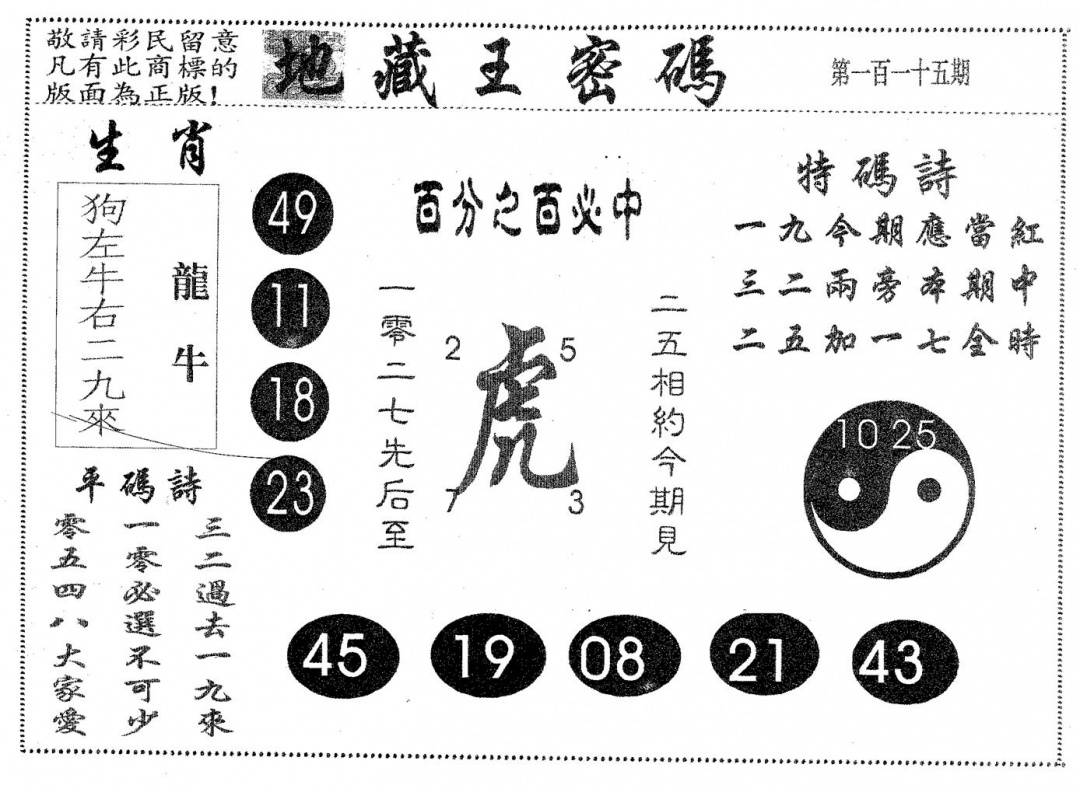 敬請彩民留意
凡有此商標的
版面為正版!
地藏王密碼
第一百一十五期
生肖
狗左牛右二九來
龍牛
49
11
18
23
百分之百必中
一零二七先后至
虎
2
5
7
3
二五相約今期見
特碼詩
一九今期應當紅
三二兩旁本期中
二五加一七全時
10 25
平碼詩
三二過去一九來
一零必選不可少
零五四八大家愛
45
19
08
21
43